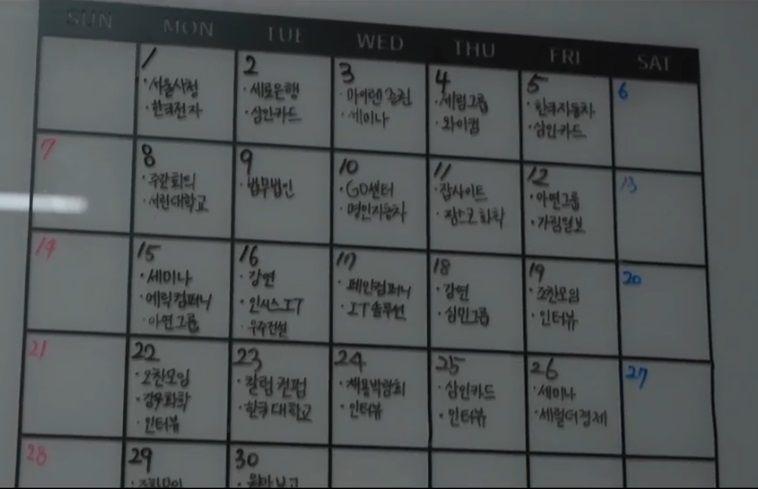 SUN MON TUE WED THU FRI SAT
1 2 3 4 5 6
· 서울시청 · 새로은행 · 세림그룹 · 한국자동차
· 한국전자 · 삼인카드 · 세미나 · 와이컴 · 삼인카드
7 8 9 10 11 12 13
· 주간회의 · 법무법인 · GO센터 · 잡사이트 · 아연그룹
· 서린대학교 · 명인자동차 · 화학 · 가림일보
14 15 16 17 18 19 20
· 세미나 · 강연 · 페인컴퍼니 · 강연 · 조찬모임
· 에릭컴퍼니 · 인시스IT · IT솔루션 · 심민그룹 · 인터뷰
· 아연그룹 · 우주건설
21 22 23 24 25 26 27
· 오찬모임 · 칼럼 컨펌 · 채용박람회 · 삼인카드 · 세미나
· 화학 · 한국대학교 · 인터뷰 · 인터뷰 · 세렬더경제
· 인터뷰
28 29 30